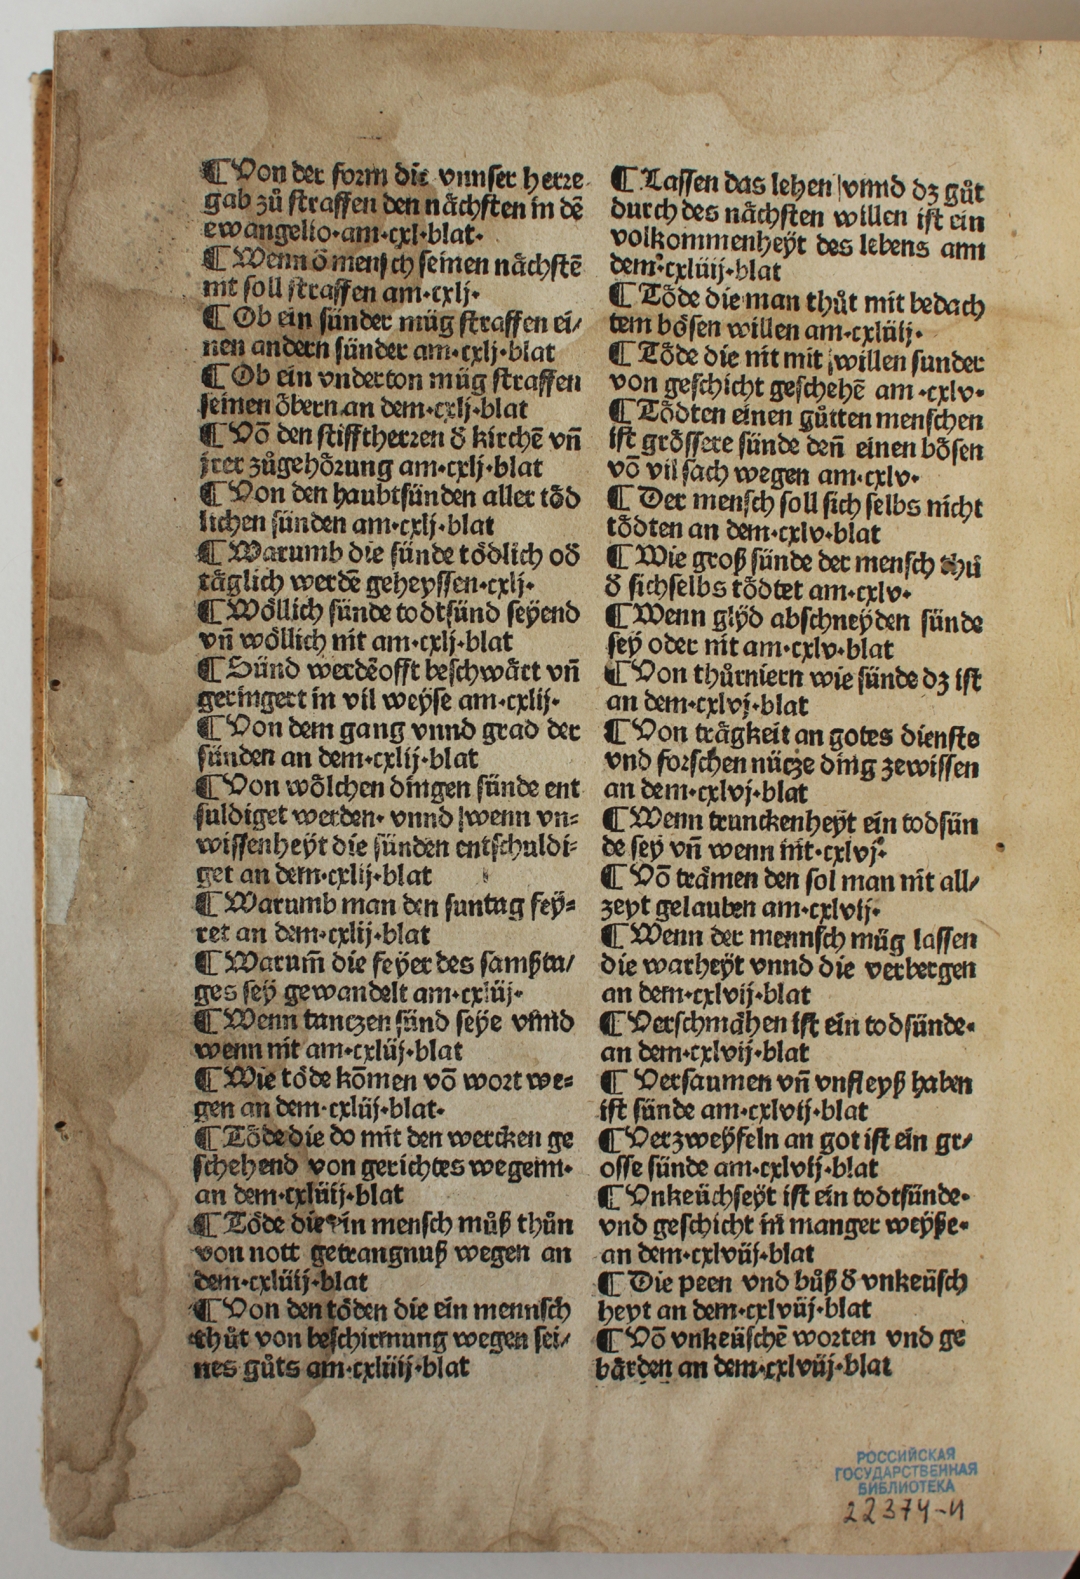 ¶ Von der form die vnnser herre
gab zů straffen den nåchsten in dē
ewangelio·am·cxl·blat·
¶ Wenn ð mensch seinen nåchstē
nit soll straffen am·cxlj·
¶ Ob ein sünder müg straffen ei/
nen andern sünder am·cxlj·blat
¶ Ob ein vnderton müg straffen
seinen öbern an dem·cxlj·blat
¶ Võ den stifftherren ð kirchē vñ
jrer zůgehörung am·cxlj·blat
¶ Von den haubtsünden aller töd
lichen sünden am·cxlj·blat
¶ Warumb die sünde tödlich oð
täglich werdē geheyssen·cxlj·
¶ Wöllich sünde todtsünd seyend
vñ wöllich nit am·cxlj·blat
¶ Sünd werdē offt beschwårt vñ
geringert in vil weÿse am·cxlij·
¶ Von dem gang vnnd grad der
sünden an dem·cxlij·blat
¶ Von wölchen dingen sünde ent
suldiget werden· vnnd wenn vn=
wissenheÿt die sünden entschuldi=
get an dem·cxlij·blat
¶ Warumb man den suntag feÿ=
ret an dem·cxlij·blat
¶ Warum̃ die feÿer des samßta/
ges seÿ gewandelt am·cxliij·
¶ Wenn tanczen sünd seÿe vnnd
wenn nit am·cxliij·blat
¶ Wie töde kõmen võ wort we=
gen an dem·cxliij·blat·
¶ Töde die do mit den wercken ge
schehend von gerichtes wegenn·
an dem·cxliiij·blat
¶ Töde die ein mensch můß thůn
von nott getrangnuß wegen an
dem·cxliiij·blat
¶ Von den töden die ein mennsch
thůt von beschirmung wegen sei/
nes gůts am·cxliiij·blat
¶ Lassen das lehen vnnd dz gůt
durch des nåchsten willen ist ein
volkommenheÿt des lebens am
dem·cxliiij·blat
¶ Töde die man thůt mit bedach
tem bösen willen am·cxliiij·
¶ Töde die nit mit willen sunder
von geschicht geschehē am·cxlv·
¶ Tödten einen gůtten menschen
ist grössere sünde deñ einen bösen
võ vil sach wegen am·cxlv·
¶ Der mensch soll sich selbs nicht
tödten an dem·cxlv·blat
¶ Wie groß sünde der mensch thů
ð sichselbs tödtet am·cxlv·
¶ Wenn glÿd abschneÿden sünde
seÿ oder nit am·cxlv·blat
¶ Von thůrniern wie sünde dz ist
an dem·cxlvj·blat
¶ Von trågkeit an gotes dienste
vnd forschen nücze ding zewissen
an dem·cxlvj·blat
¶ Wenn trunckenheÿt ein todsün
de seÿ vñ wenn nit·cxlvj·
¶ Võ tråmen den sol man nit all/
zeyt gelauben am·cxlvij·
¶ Wenn der mennsch müg lassen
die warheÿt vnnd die verbergen
an dem·cxlvij·blat
¶ Verschmåhen ist ein todsünde·
an dem·cxlvij·blat
¶ Versaumen vñ vnfleyß haben
ist sünde am·cxlvij·blat
¶ Verzweÿfeln an got ist ein gr/
osse sünde am·cxlvij·blat
¶ Vnkeüchseÿt ist ein todtsünde·
vnd geschicht in manger weÿße·
an dem·cxlviij·blat
¶ Die peen vnd bůß ð vnkeüsch
heyt an dem·cxlviij·blat
¶ Võ vnkeüschē worten vnd ge
bården an dem·cxlviij·blat
РОССИЙСКАЯ
ГОСУДАРСТВЕННАЯ
БИБЛИОТЕКА
22374-И